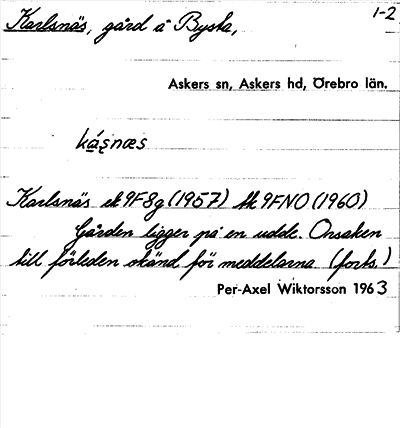 Karlsnäs, gård å Bysta,
1-2
Askers sn, Askers hd, Örebro län.
ká̱ṣnæs
Karlsnäs ek 9F8g (1957) tk 9FNO (1960)
Gården ligger på en udde. Orsaken
till förleden okänd för meddelarna. (forts.)
Per-Axel Wiktorsson 1963